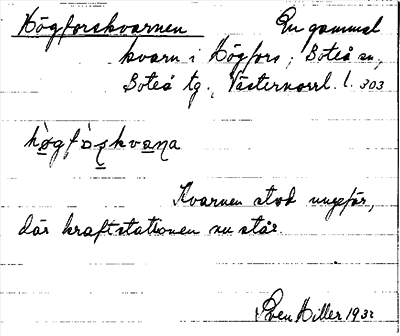 Högforskvarnen En gammal
kvarn i Högfors, Boteå sn,
Boteå tg., Västernorrl. l. 303
högfo̱ʂkvana
Kvarnen stod ungefär,
där kraftstationen nu står.
Sven Hiller 1932